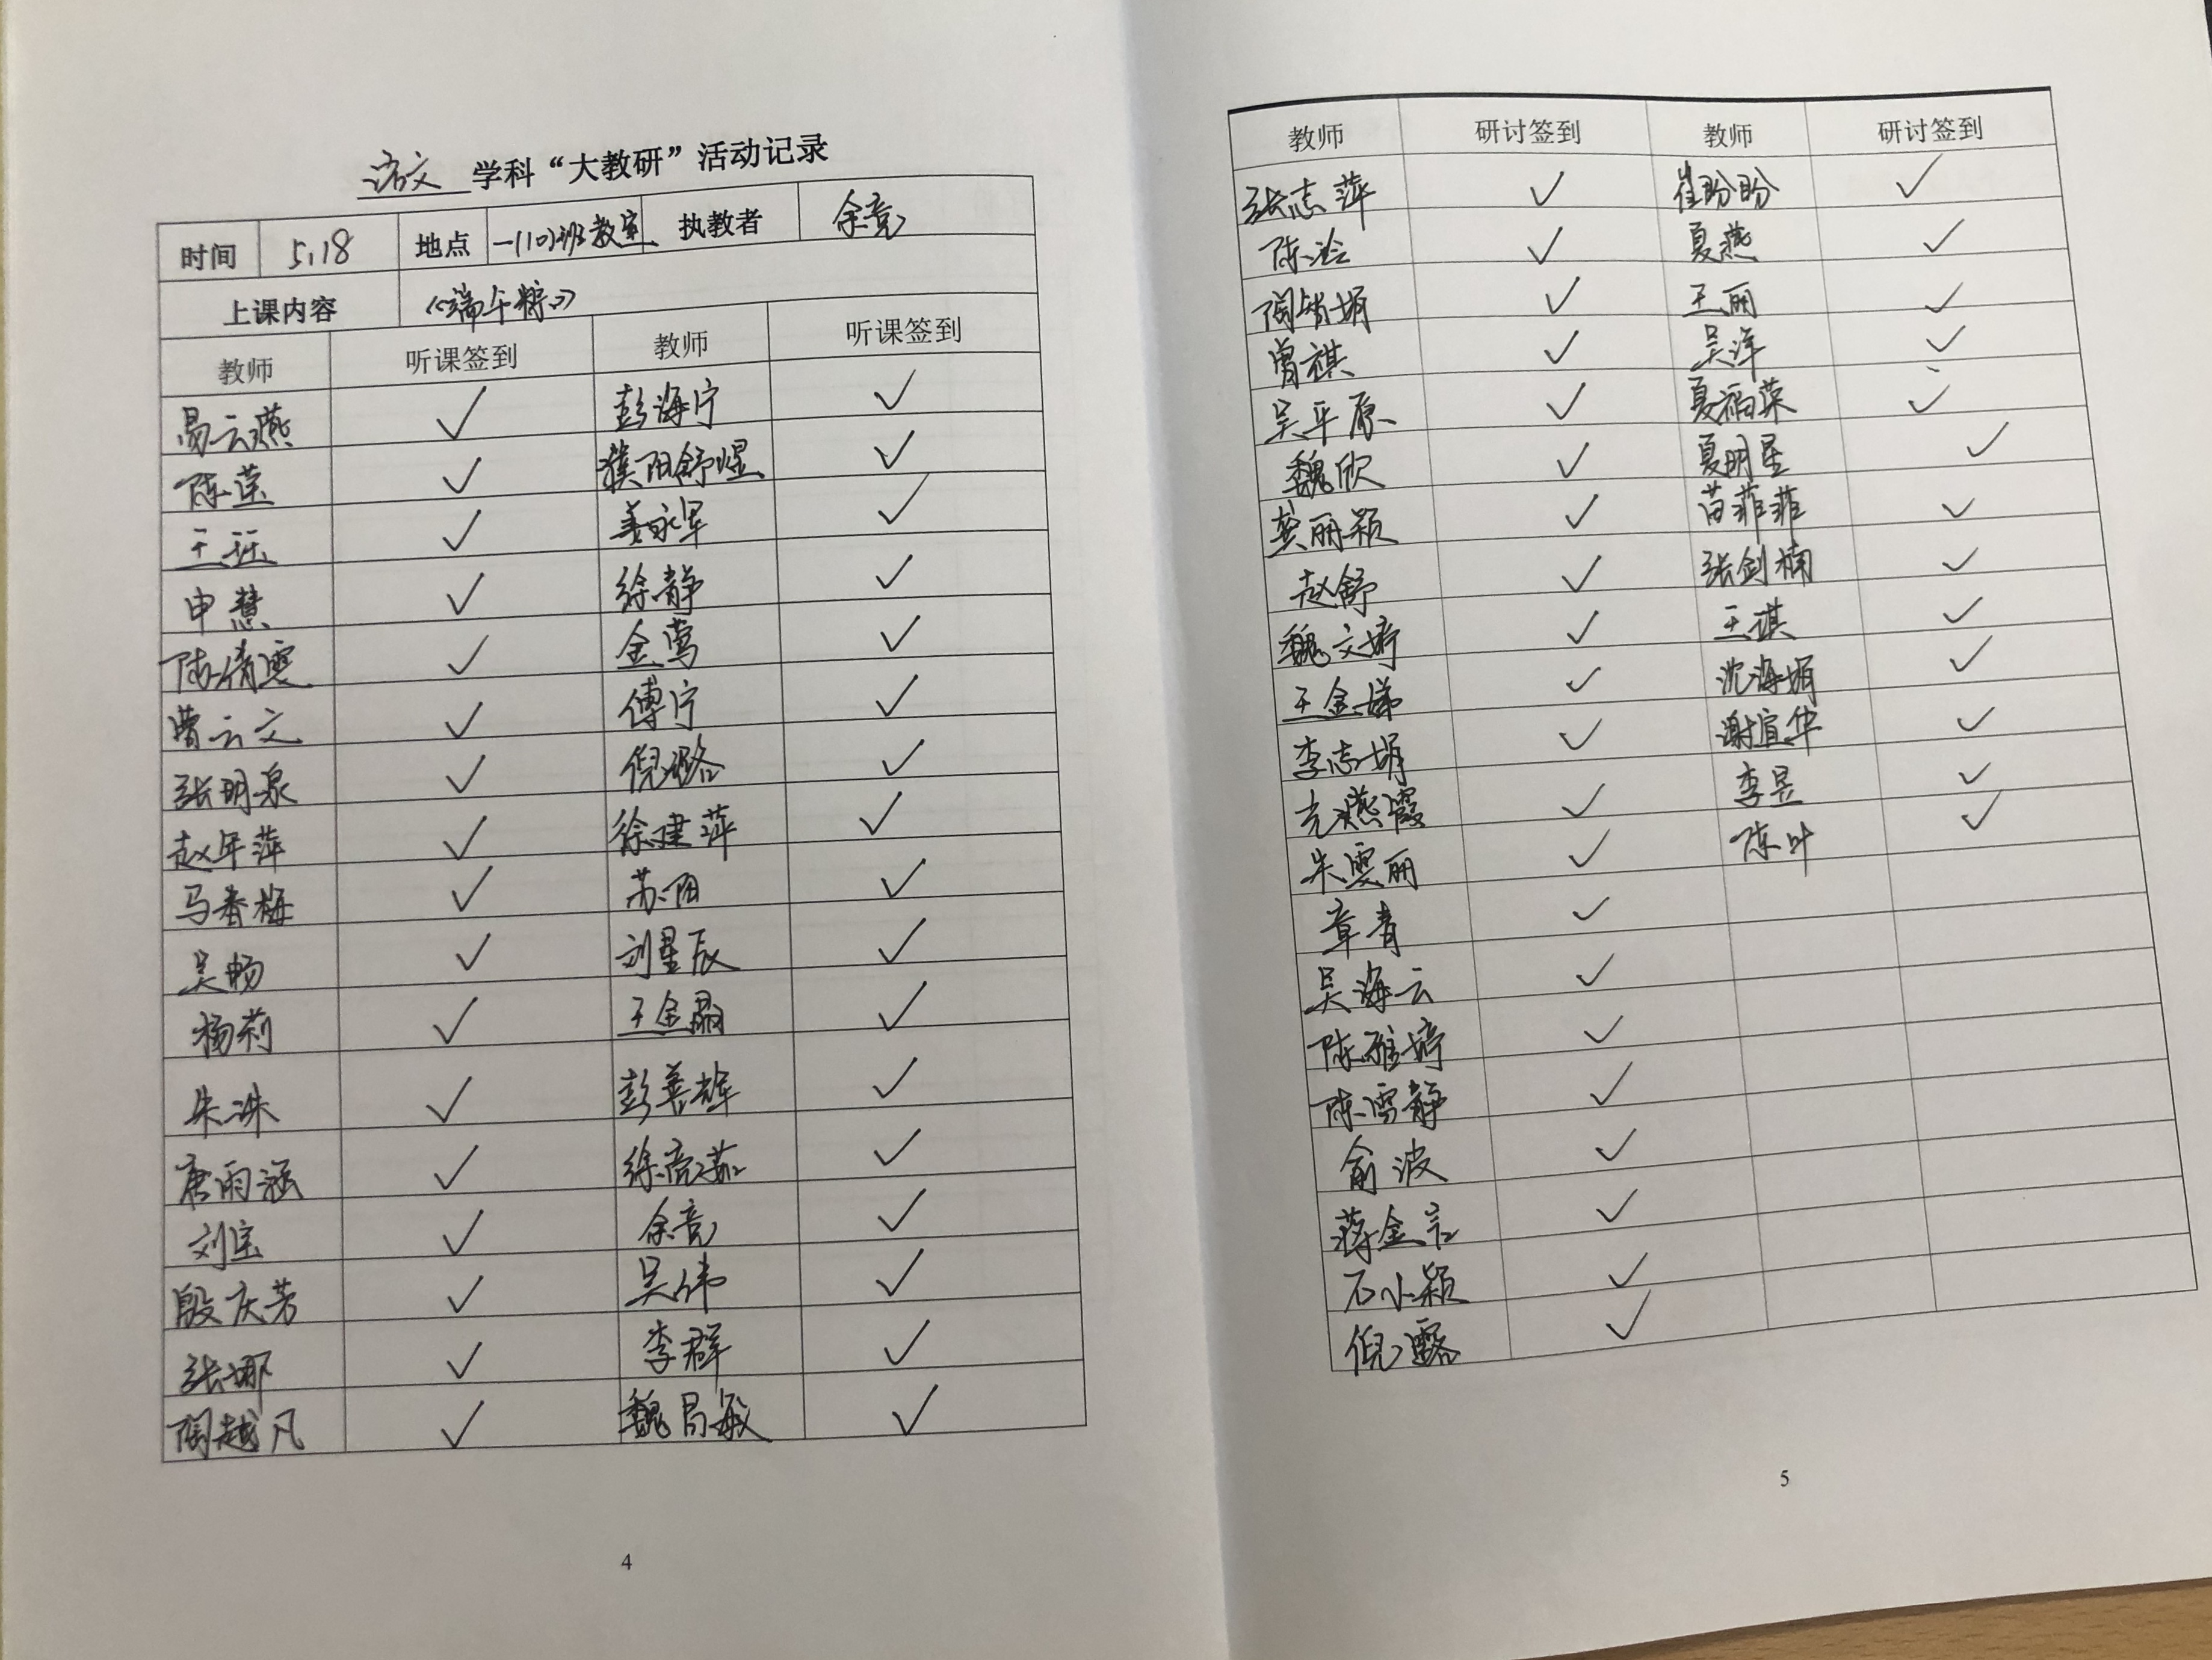 语文 学科“大教研”活动记录
时间 5.18 地点 一(10)班教室 执教者 余竞
上课内容 《端午粽》
教师 听课签到 教师 听课签到
易云燕 ✓ 彭海宁 ✓
陈莹 ✓ 濮阳舒煜 ✓
王珏 ✓ 姜永军 ✓
申慧 ✓ 徐静 ✓
陆倩雯 ✓ 金莺 ✓
曹云文 ✓ 傅宁 ✓
张明泉 ✓ 倪璐 ✓
赵年萍 ✓ 徐建萍 ✓
马春梅 ✓ 苏阳 ✓
吴畅 ✓ 刘星辰 ✓
杨莉 ✓ 王金晶 ✓
朱洙 ✓ 彭善辉 ✓
唐雨涵 ✓ 徐亮茹 ✓
刘宝 ✓ 余竞 ✓
殷庆芳 ✓ 吴伟 ✓
张娜 ✓ 李群 ✓
陶越凡 ✓ 魏局敏 ✓
4
教师 研讨签到 教师 研讨签到
张志萍 ✓ 崔盼盼 ✓
陈泠 ✓ 夏燕 ✓
陶娟 ✓ 王丽 ✓
曾祺 ✓ 吴洋 ✓
吴平原 ✓ 夏福荣 ✓
魏欣 ✓ 夏明星 ✓
龚丽颖 ✓ 苗菲菲 ✓
赵舒 ✓ 张剑楠 ✓
魏文婷 ✓ 王琪 ✓
王金娣 ✓ 沈海娟 ✓
李志娟 ✓ 谢宜华 ✓
光燕霞 ✓ 李昱 ✓
朱雯丽 ✓ 陈叶 ✓
章青 ✓
吴海云 ✓
陈雅婷 ✓
陈雪静 ✓
俞波 ✓
蒋金言 ✓
石小颖 ✓
倪露 ✓
5